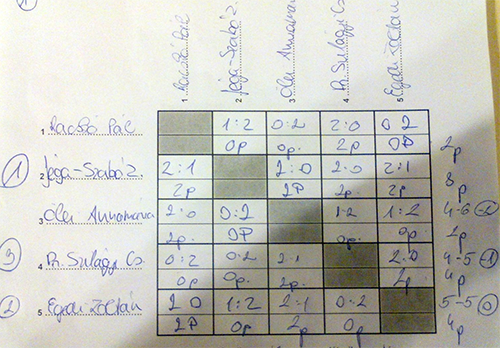 1 Racskó Pál
2 Jéga-Szabó Z.
3 Ölei Annamária
4 P. Szilágyi Cs.
5 Egedi Zoltán
1 Racskó Pál 1:2 0:2 2:0 0 2
0p 0p. 2p 0P 2p
1 2 Jéga-Szabó Z. 2:1 2:0 2:0 2:1
2p 2P 2p. 2p 8p
3 Annamária 2:0 0:2 1:2 1:2 4-6 -2
2p. 0P 0p. 0p 2p
3 4 P. Szilágyi Cs. 0:2 0:2 2:1 2:0 4-5 -1
0p 0p. 2p. 2p 4p
2 5 Egedi Zoltán 2 0 1:2 2:1 0:2 5-5 0
2P 0p 2p 0p. 4p